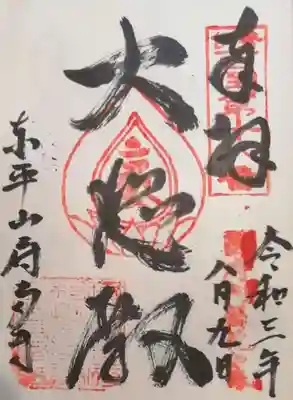 奉拝
令和三年
八月九日
大悲殿
泰平山府南寺